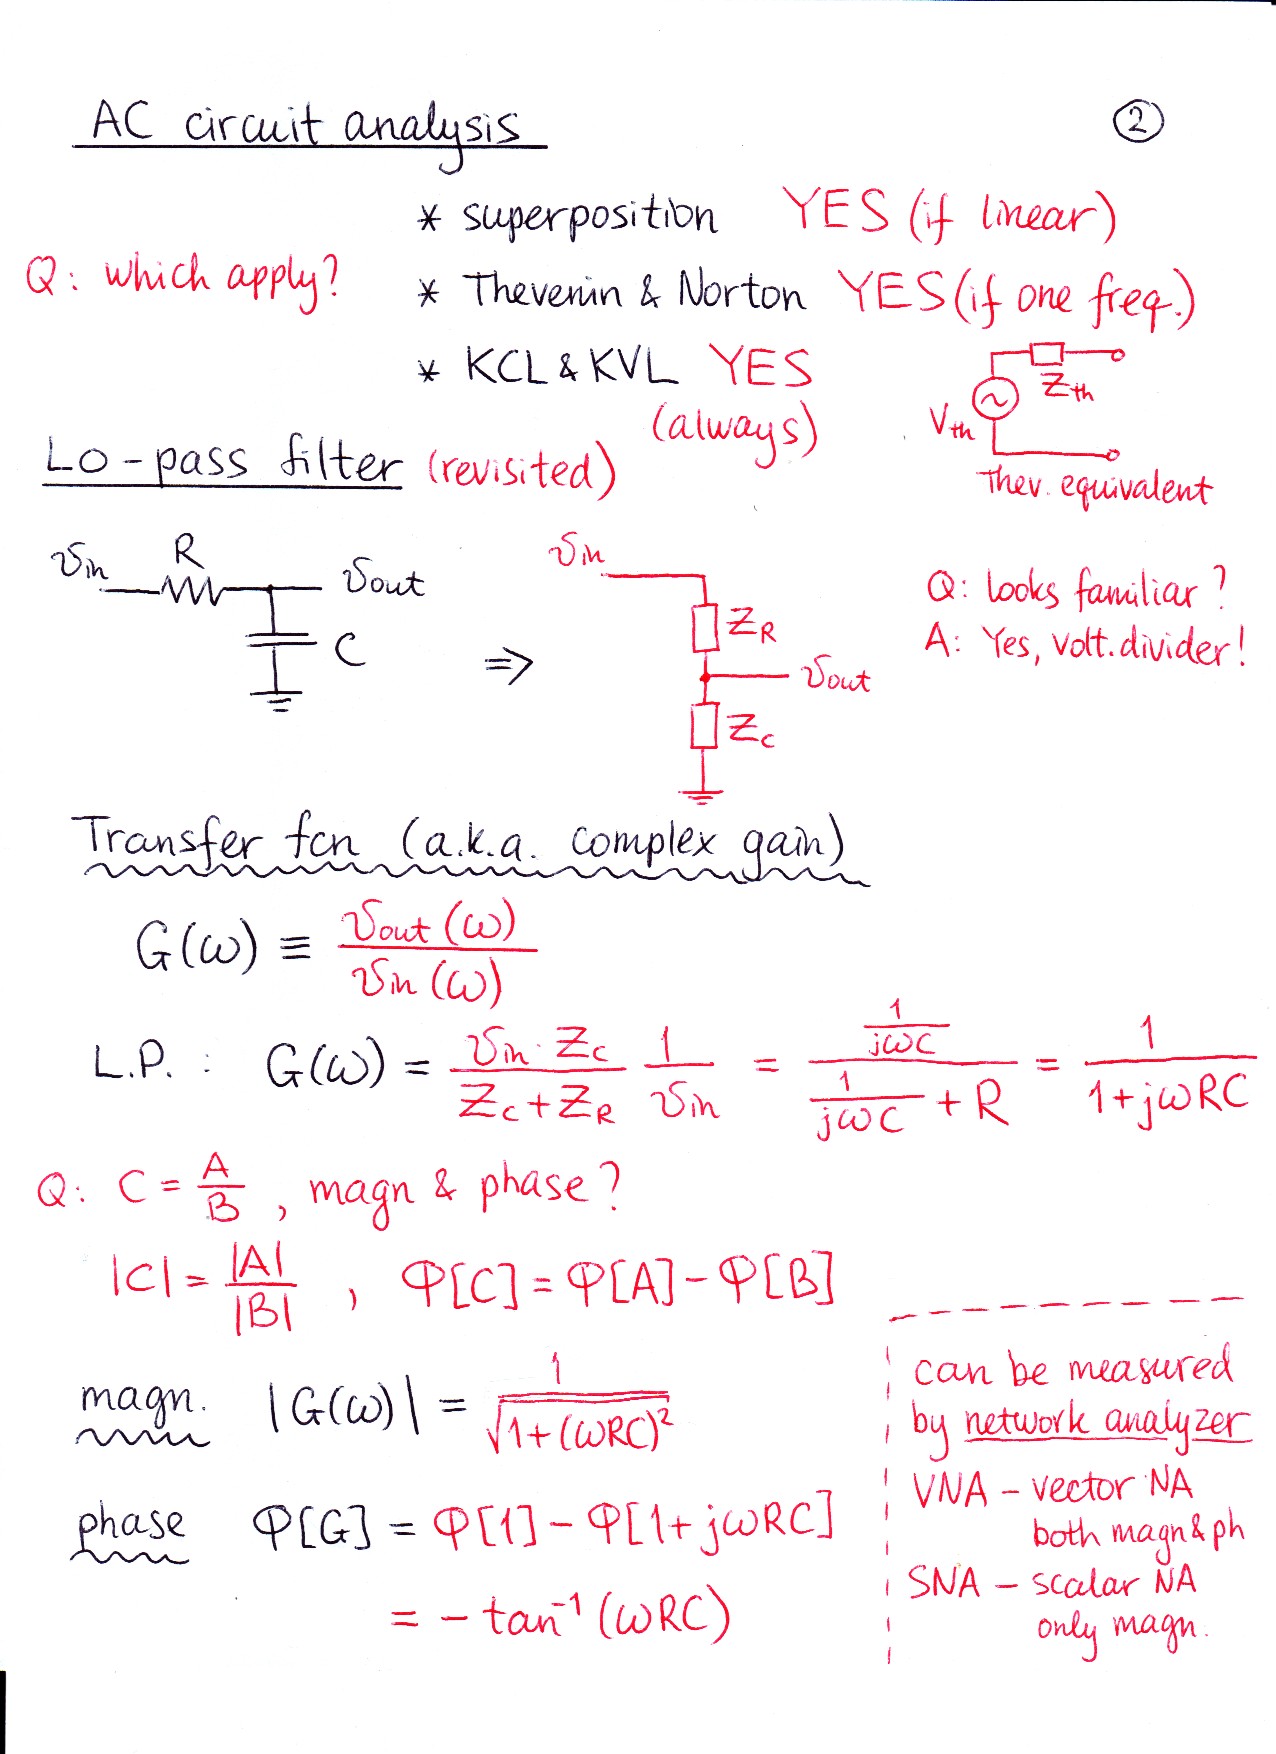 AC circuit analysis
②
* superposition YES (if linear)
Q: which apply?
* Thevenin & Norton YES (if one freq.)
* KCL & KVL YES
(always)
Zth
Vth
Thev. equivalent
Lo-pass filter (revisited)
vin R vout
C
⇒
vin
ZR
vout
Zc
Q: looks familiar?
A: Yes, volt. divider!
Transfer fcn (a.k.a. complex gain)
G(ω) ≡ vout (ω) / vin (ω)
L.P. : G(ω) = (vin · Zc) / (Zc + ZR) 1 / vin = (1/jωC) / (1/jωC + R) = 1 / (1+jωRC)
Q: C = A/B , magn & phase?
|C| = |A| / |B| , φ[C] = φ[A] - φ[B]
magn. |G(ω)| = 1 / √(1+(ωRC)²)
phase φ[G] = φ[1] - φ[1+jωRC]
= - tan⁻¹ (ωRC)
can be measured
by network analyzer
VNA - vector NA
both magn & ph
SNA - scalar NA
only magn.